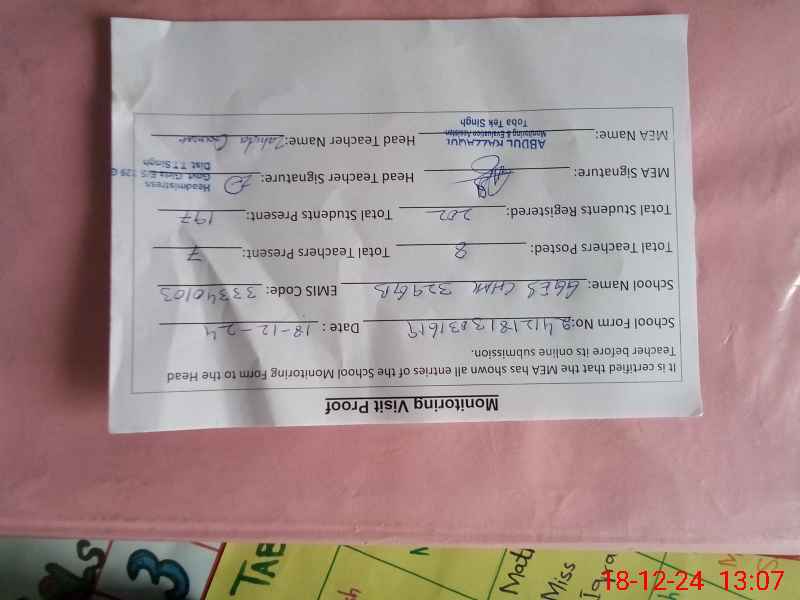 Monitoring Visit Proof
It is certified that the MEA has shown all entries of the School Monitoring Form to the Head
Teacher before its online submission.
School Form No: Date: 18-12-24
School Name: GGES CHAK 329GB EMIS Code: 33340103
Total Teachers Posted: 8 Total Teachers Present: 7
Total Students Registered: 202 Total Students Present: 197
MEA Signature: Head Teacher Signature:
Headmistress
Govt. Girls E/S 329 G
Dist. T.T.Singh
MEA Name: Head Teacher Name: Zahida
Monitoring & Evaluation Assistant
Toba Tek Singh
3
TAB
Miss
18-12-24 13:07